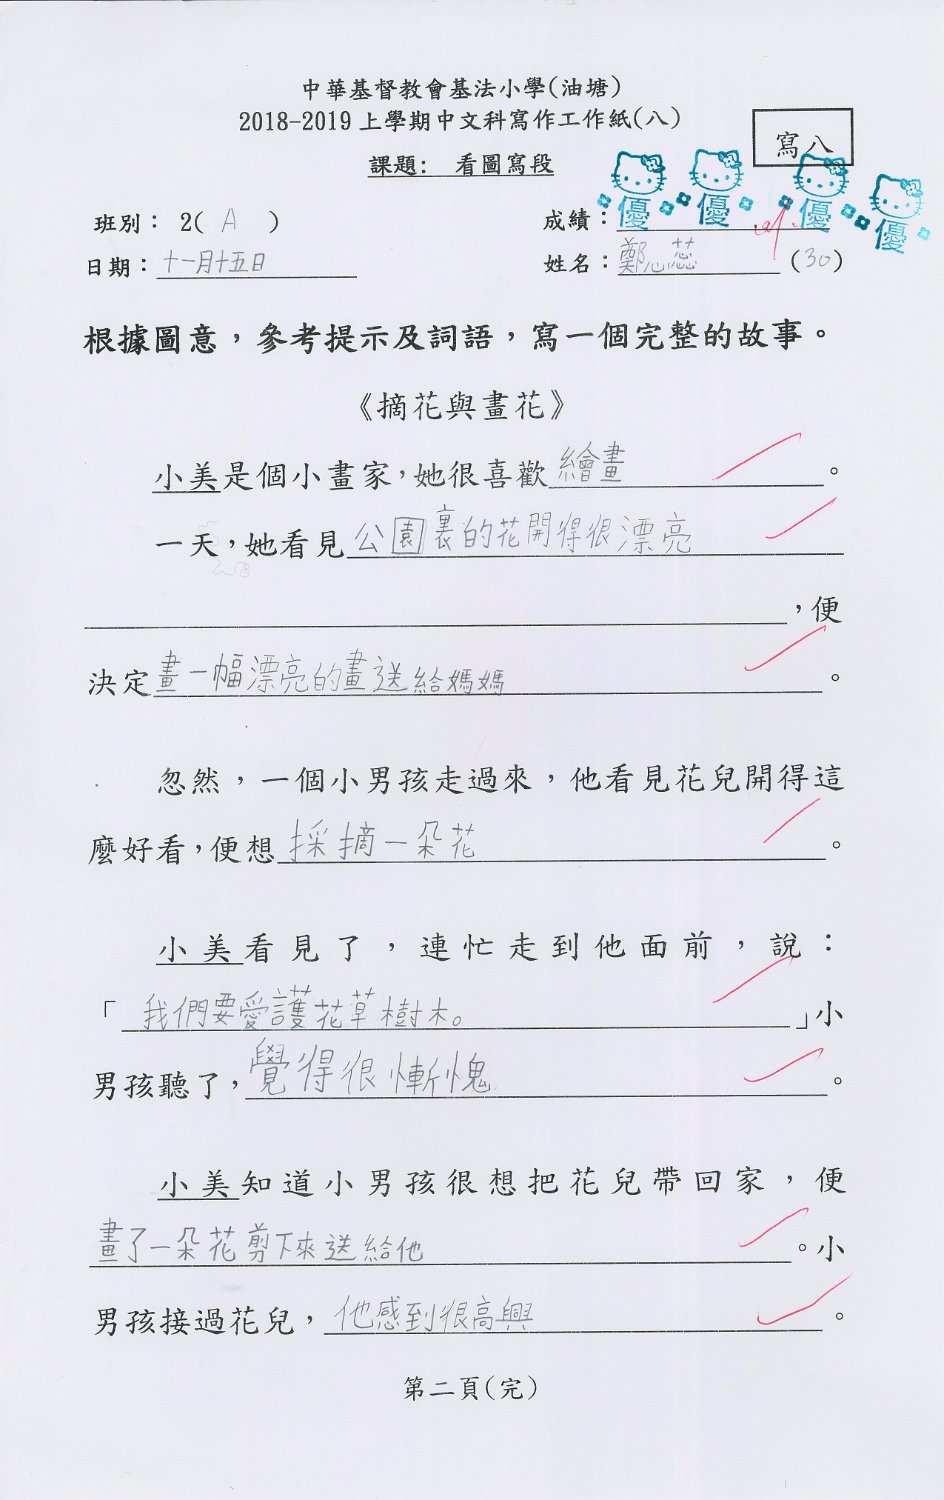 中華基督教會基法小學(油塘)
2018-2019上學期中文科寫作工作紙(八)
寫八
課題: 看圖寫段
優 優 優 優
班別： 2( A ) 成績：
日期：十一月十五日 姓名：鄭心蕊 (30)
根據圖意，參考提示及詞語，寫一個完整的故事。
《摘花與畫花》
小美是個小畫家，她很喜歡繪畫。
一天，她看見公園裏的花開得很漂亮
，便
決定畫一幅漂亮的畫送給媽媽。
忽然，一個小男孩走過來，他看見花兒開得這
麼好看，便想採摘一朵花。
小美看見了，連忙走到他面前，說：
「我們要愛護花草樹木。」小
男孩聽了，覺得很慚愧。
小美知道小男孩很想把花兒帶回家，便
畫了一朵花剪下來送給他。小
男孩接過花兒，他感到很高興。
第二頁(完)